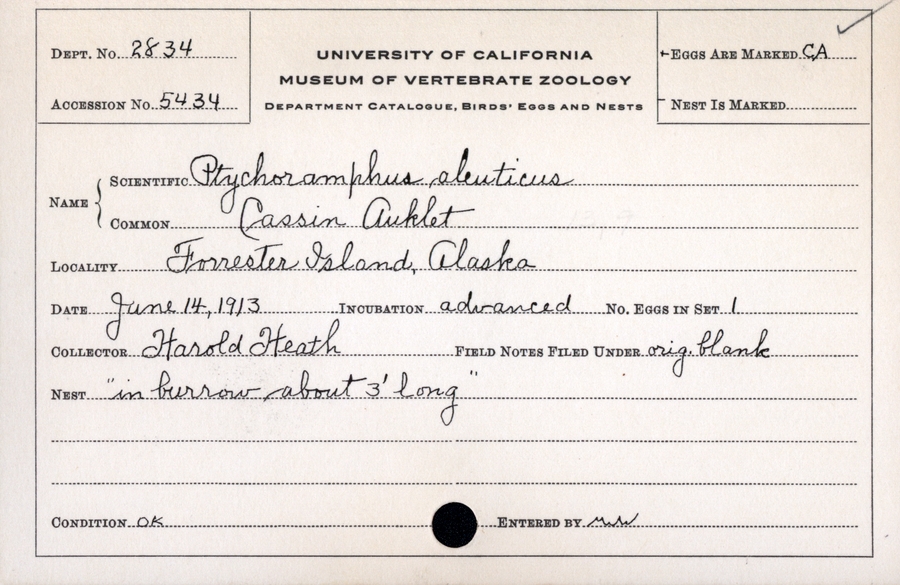 Dept. No. 2834
Accession No. 5434
UNIVERSITY OF CALIFORNIA
MUSEUM OF VERTEBRATE ZOOLOGY
Department Catalogue, Birds' Eggs and Nests
Eggs Are Marked CA
Nest Is Marked
Name
Scientific Ptychoramphus aleuticus
Common Cassin Auklet
Locality Forrester Island, Alaska
Date June 14, 1913 Incubation advanced No. Eggs in Set 1
Collector Harold Heath Field Notes Filed Under orig. blank
Nest "in burrow about 3' long"
Condition OK Entered by